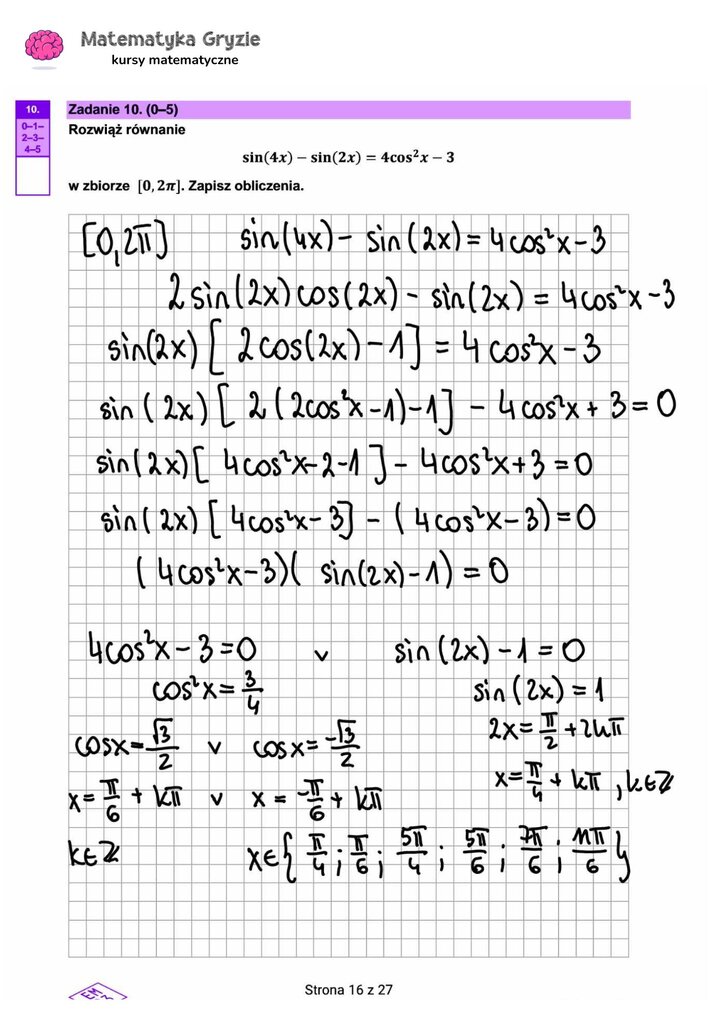 Matematyka Gryzie
kursy matematyczne
10.
0–1–
2–3–
4–5
Zadanie 10. (0–5)
Rozwiąż równanie
sin(4x) − sin(2x) = 4cos²x − 3
w zbiorze [0, 2π]. Zapisz obliczenia.
[0,2π] sin(4x) - sin(2x) = 4cos²x-3
2sin(2x)cos(2x) - sin(2x) = 4cos²x-3
sin(2x)[2cos(2x)-1] = 4cos²x-3
sin(2x)[2(2cos²x-1)-1] - 4cos²x+3=0
sin(2x)[4cos²x-2-1] - 4cos²x+3=0
sin(2x)[4cos²x-3] - (4cos²x-3)=0
(4cos²x-3)(sin(2x)-1)=0
4cos²x-3=0 ∨ sin(2x)-1=0
cos²x=3/4 sin(2x)=1
cosx=√3/2 ∨ cosx=-√3/2 2x=π/2+2kπ
x=π/6+kπ ∨ x=-π/6+kπ x=π/4+kπ, k∈ℤ
k∈ℤ x∈{π/4; π/6; 5π/4; 5π/6; 7π/6; 11π/6}
Strona 16 z 27